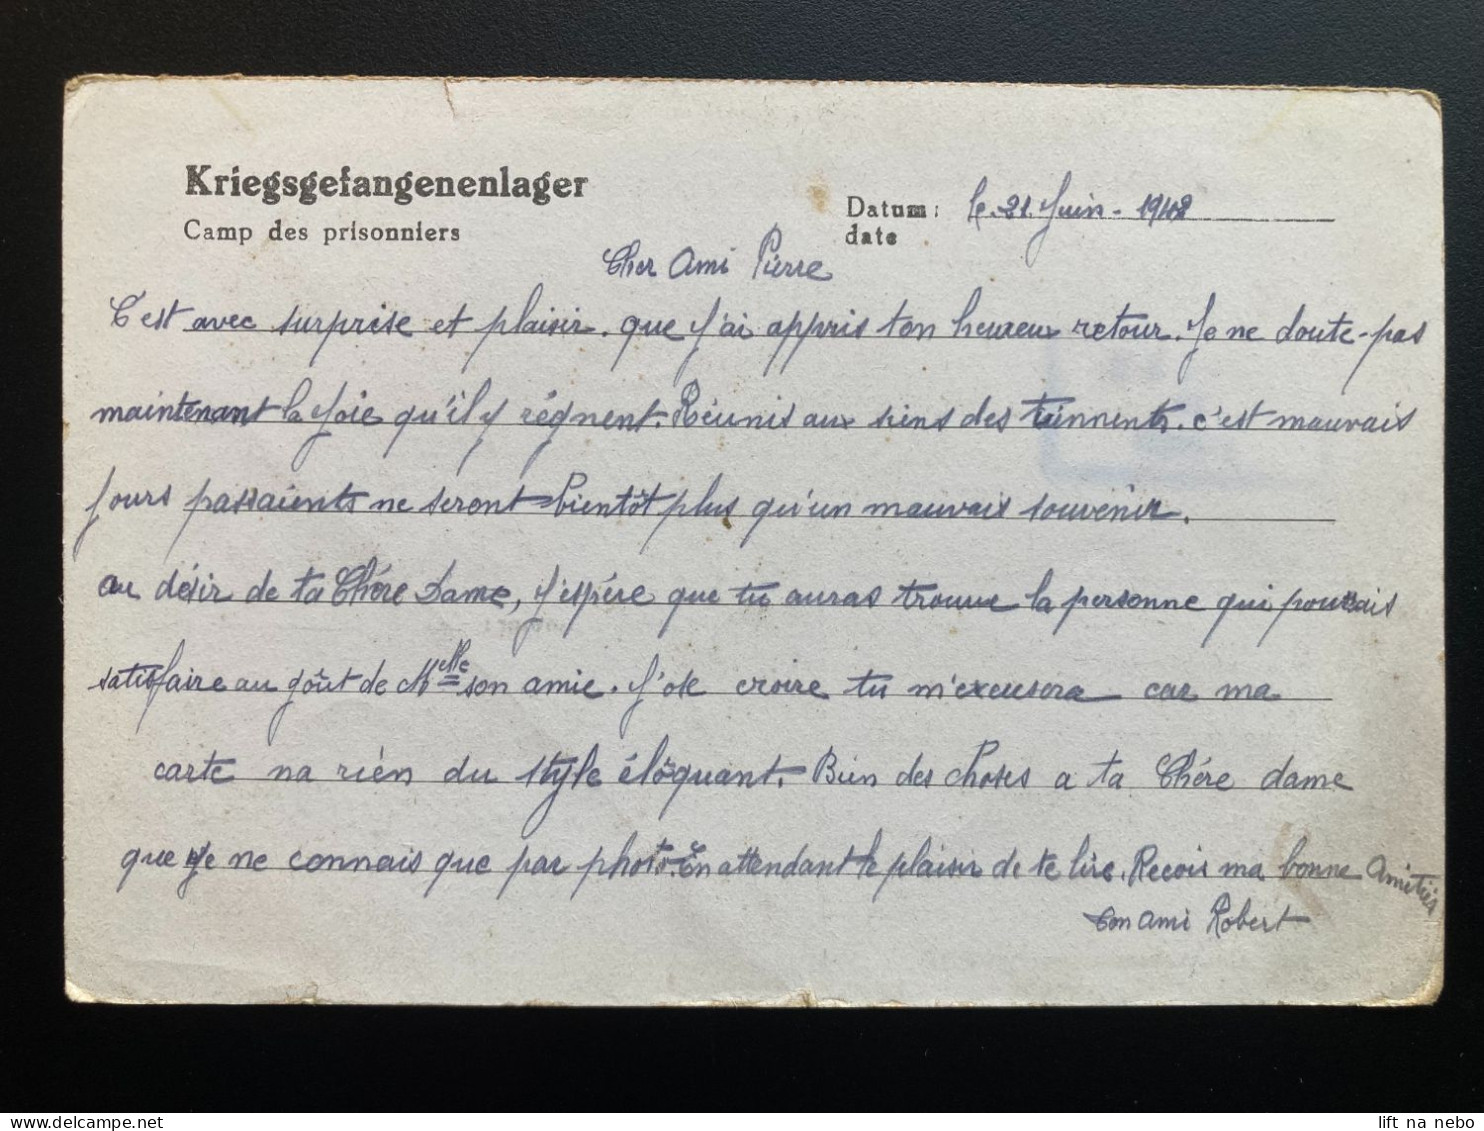 Kriegsgefangenenlager
Camp des prisonniers
Datum: le 21. Juin - 1942
date
Cher Ami Pierre
C'est avec surprise et plaisir. que j'ai appris ton heureux retour. Je ne doute-pas
maintenant la joie qu'il y régnent. Réunis aux siens des c'est mauvais
jours passaients ne seront bientôt plus qu'un mauvais souvenir.
au désir de ta Chére Dame, j'espére que tu auras trouve la personne qui pourrais
satisfaire au goût de Melle son amie. J'ose croire tu m'excusera car ma
carte na rién du style éloquant. Bien des choses a ta Chére dame
que je ne connais que par photo. En attendant le plaisir de te lire. Recois ma bonne Amitiés
ton ami Robert
lift na nebo